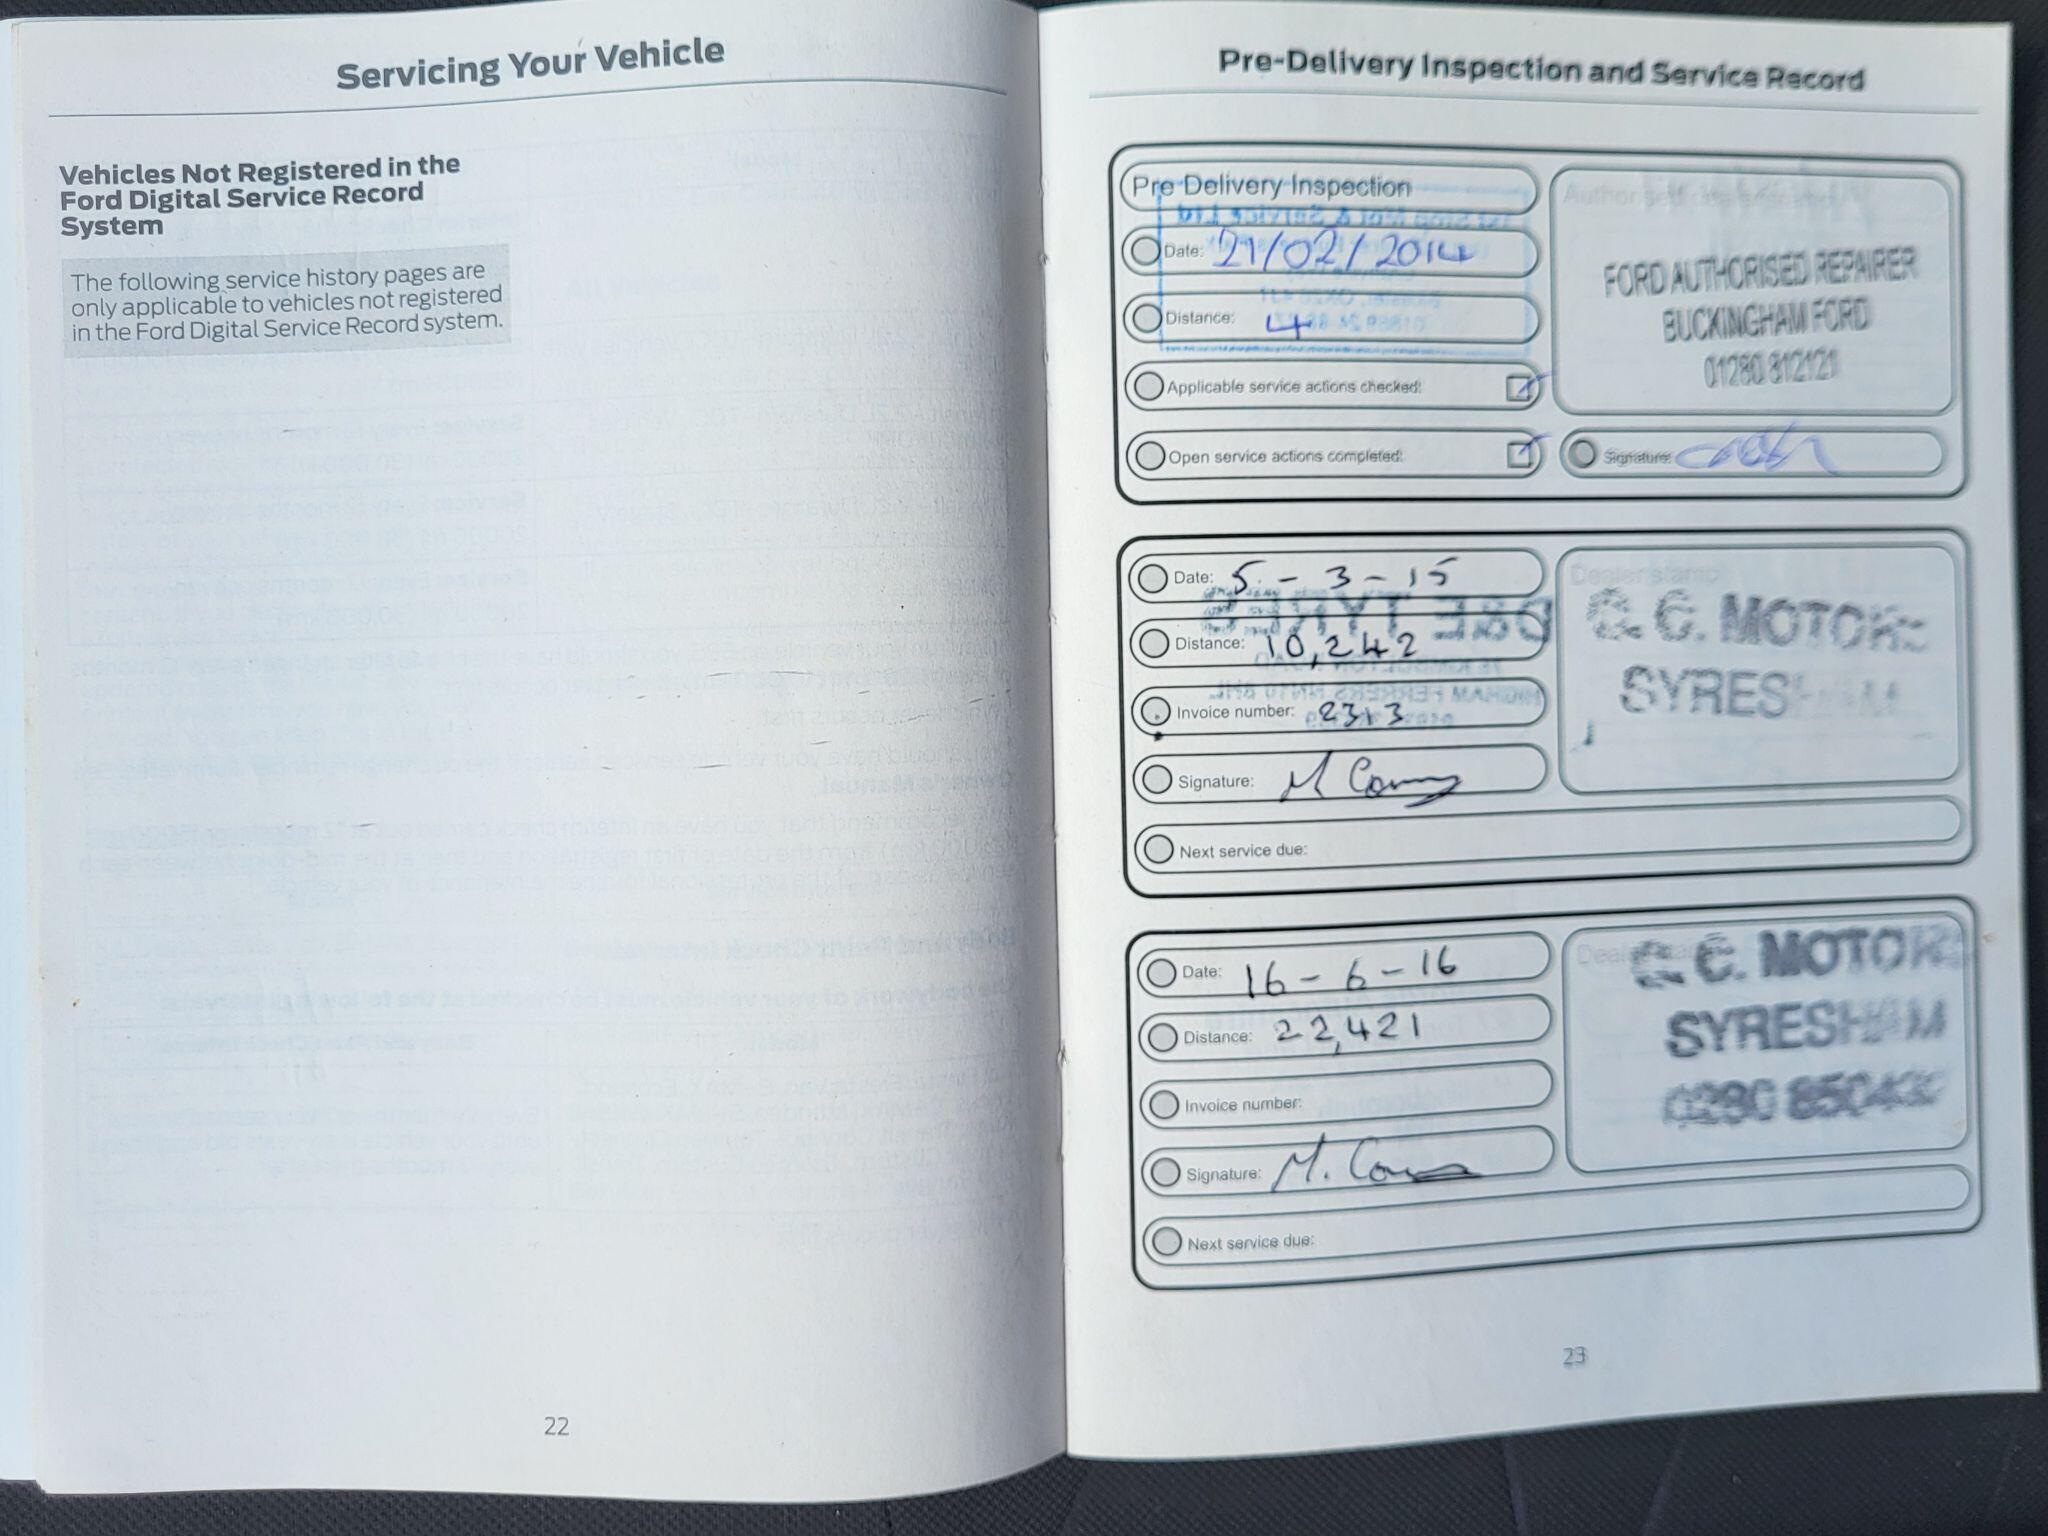 Servicing Your Vehicle
Vehicles Not Registered in the
Ford Digital Service Record
System
The following service history pages are
only applicable to vehicles not registered
in the Ford Digital Service Record system.
22
Pre-Delivery Inspection and Service Record
Pre Delivery Inspection
Date: 21/02/2014
Distance: 4
Applicable service actions checked:
Open service actions completed:
FORD AUTHORISED REPAIRER
BUCKINGHAM FORD
01280 812121
Signature:
Date: 5 - 3 - 15
Distance: 10,242
Invoice number: 2313
Signature: M
Next service due:
Dealer stamp
C. MOTORS
SYRESHAM
Date: 16 - 6 - 16
Distance: 22,421
Invoice number:
Signature: M.
Next service due:
C. MOTORS
SYRESHAM
23